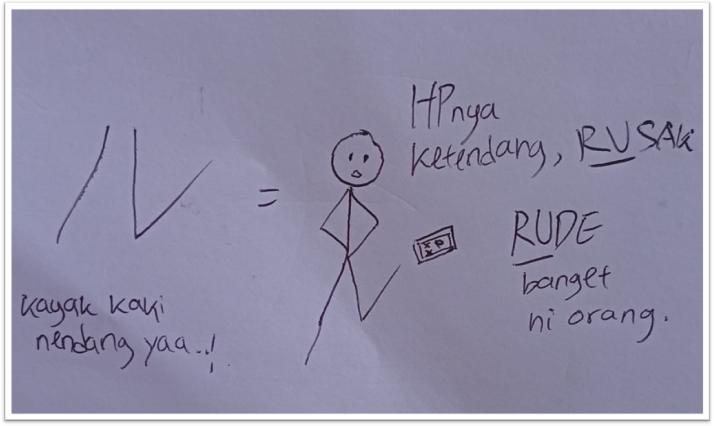 ル =
kayak kaki
nendang yaa..!
HPnya
ketendang, RUSAK
RUDE
banget
ni orang.